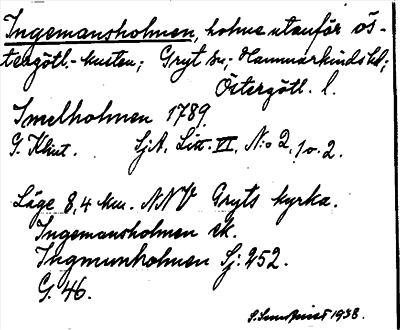 Ingemansholmen, holme utanför ös-
tergötl.-kusten; Gryt sn; Hammarkinds hd;
Östergötl. l.
Smelholmen 1789.
G. Klint. SjA, Litt. VI, N:o 2, 1 o. 2.
Läge 8,4 km. NNV Gryts kyrka.
Ingemansholmen ek.
Ingmunholmen Sj: 252.
G. 46.
1938.